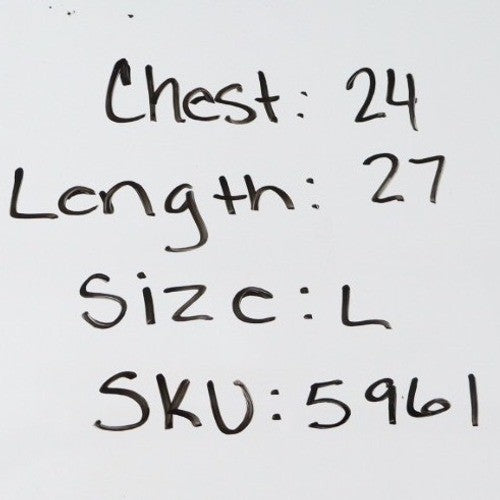 Chest: 24
Length: 27
Size: L
SKU: 5961